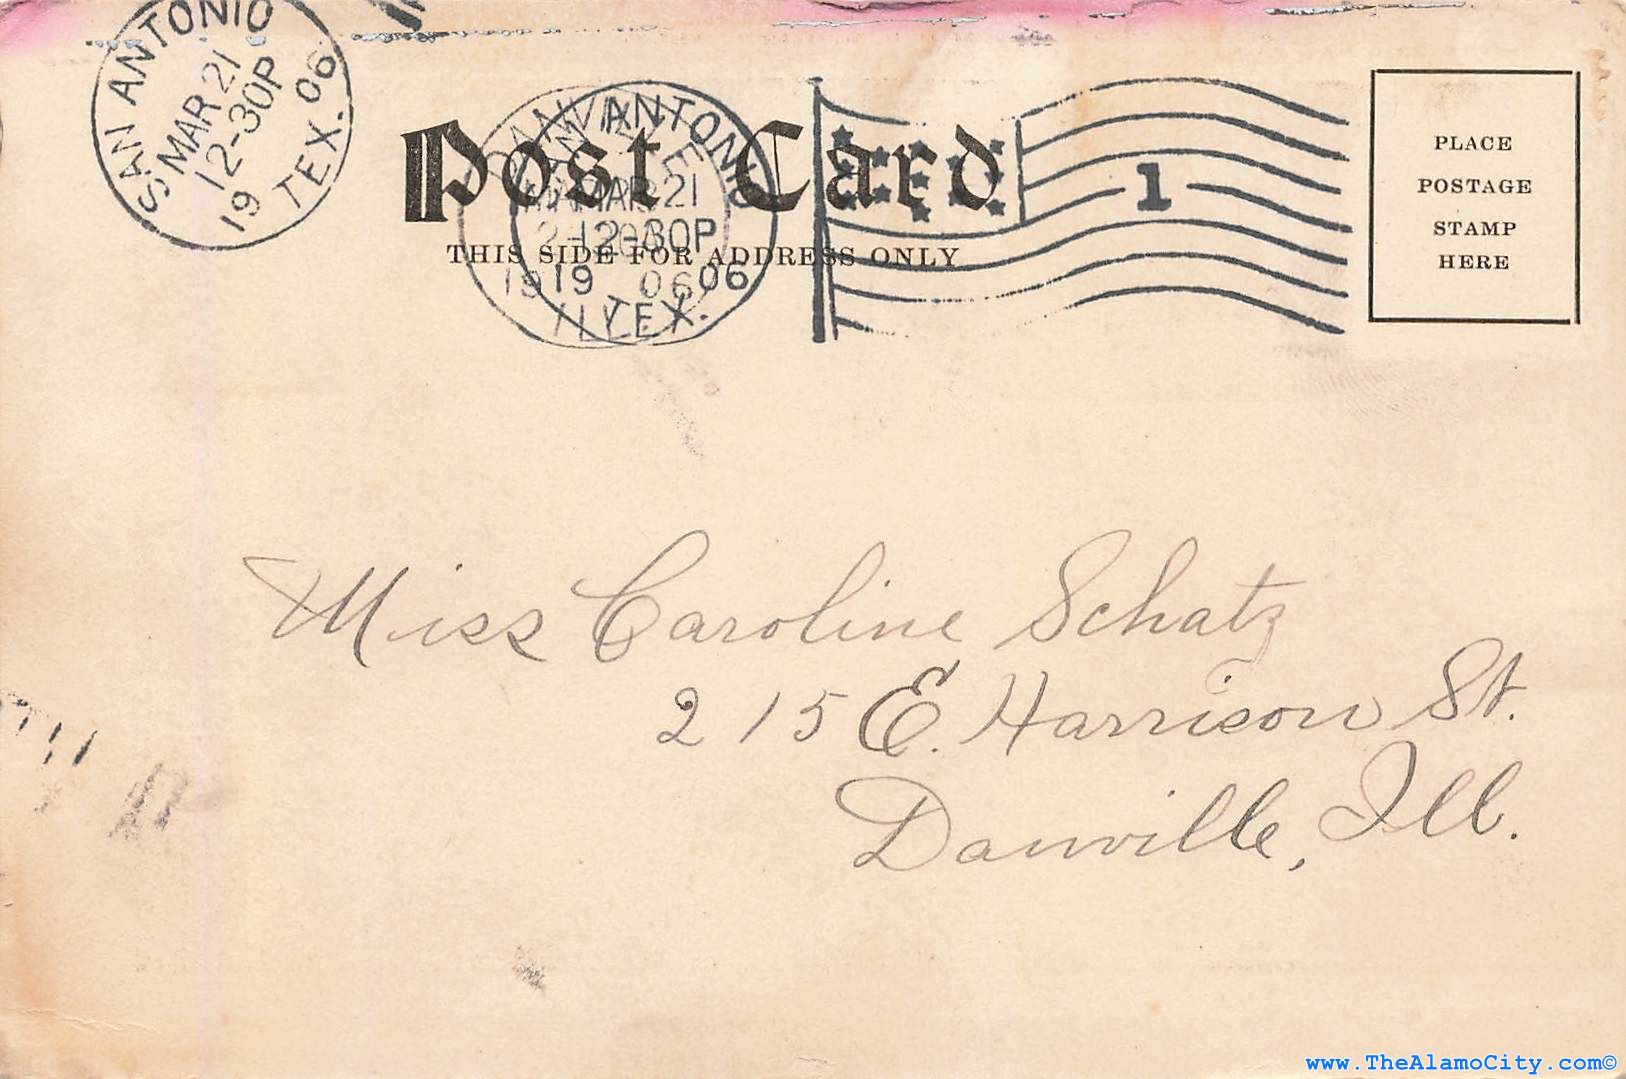 SAN ANTONIO
MAR 21
12-30P
19 06
TEX.
Post Card
THIS SIDE FOR ADDRESS ONLY
ANTONIO
MAR 21
12-30P
19 06
TEX.
DANVILLE
19 06
ILL.
1
PLACE
POSTAGE
STAMP
HERE
Miss Caroline Schatz
215 E. Harrison St.
Danville, Ill.
www.TheAlamoCity.com©